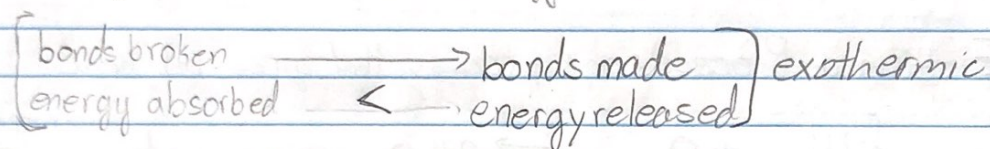 bonds broken → bonds made ] exothermic
[energy absorbed < energy released]